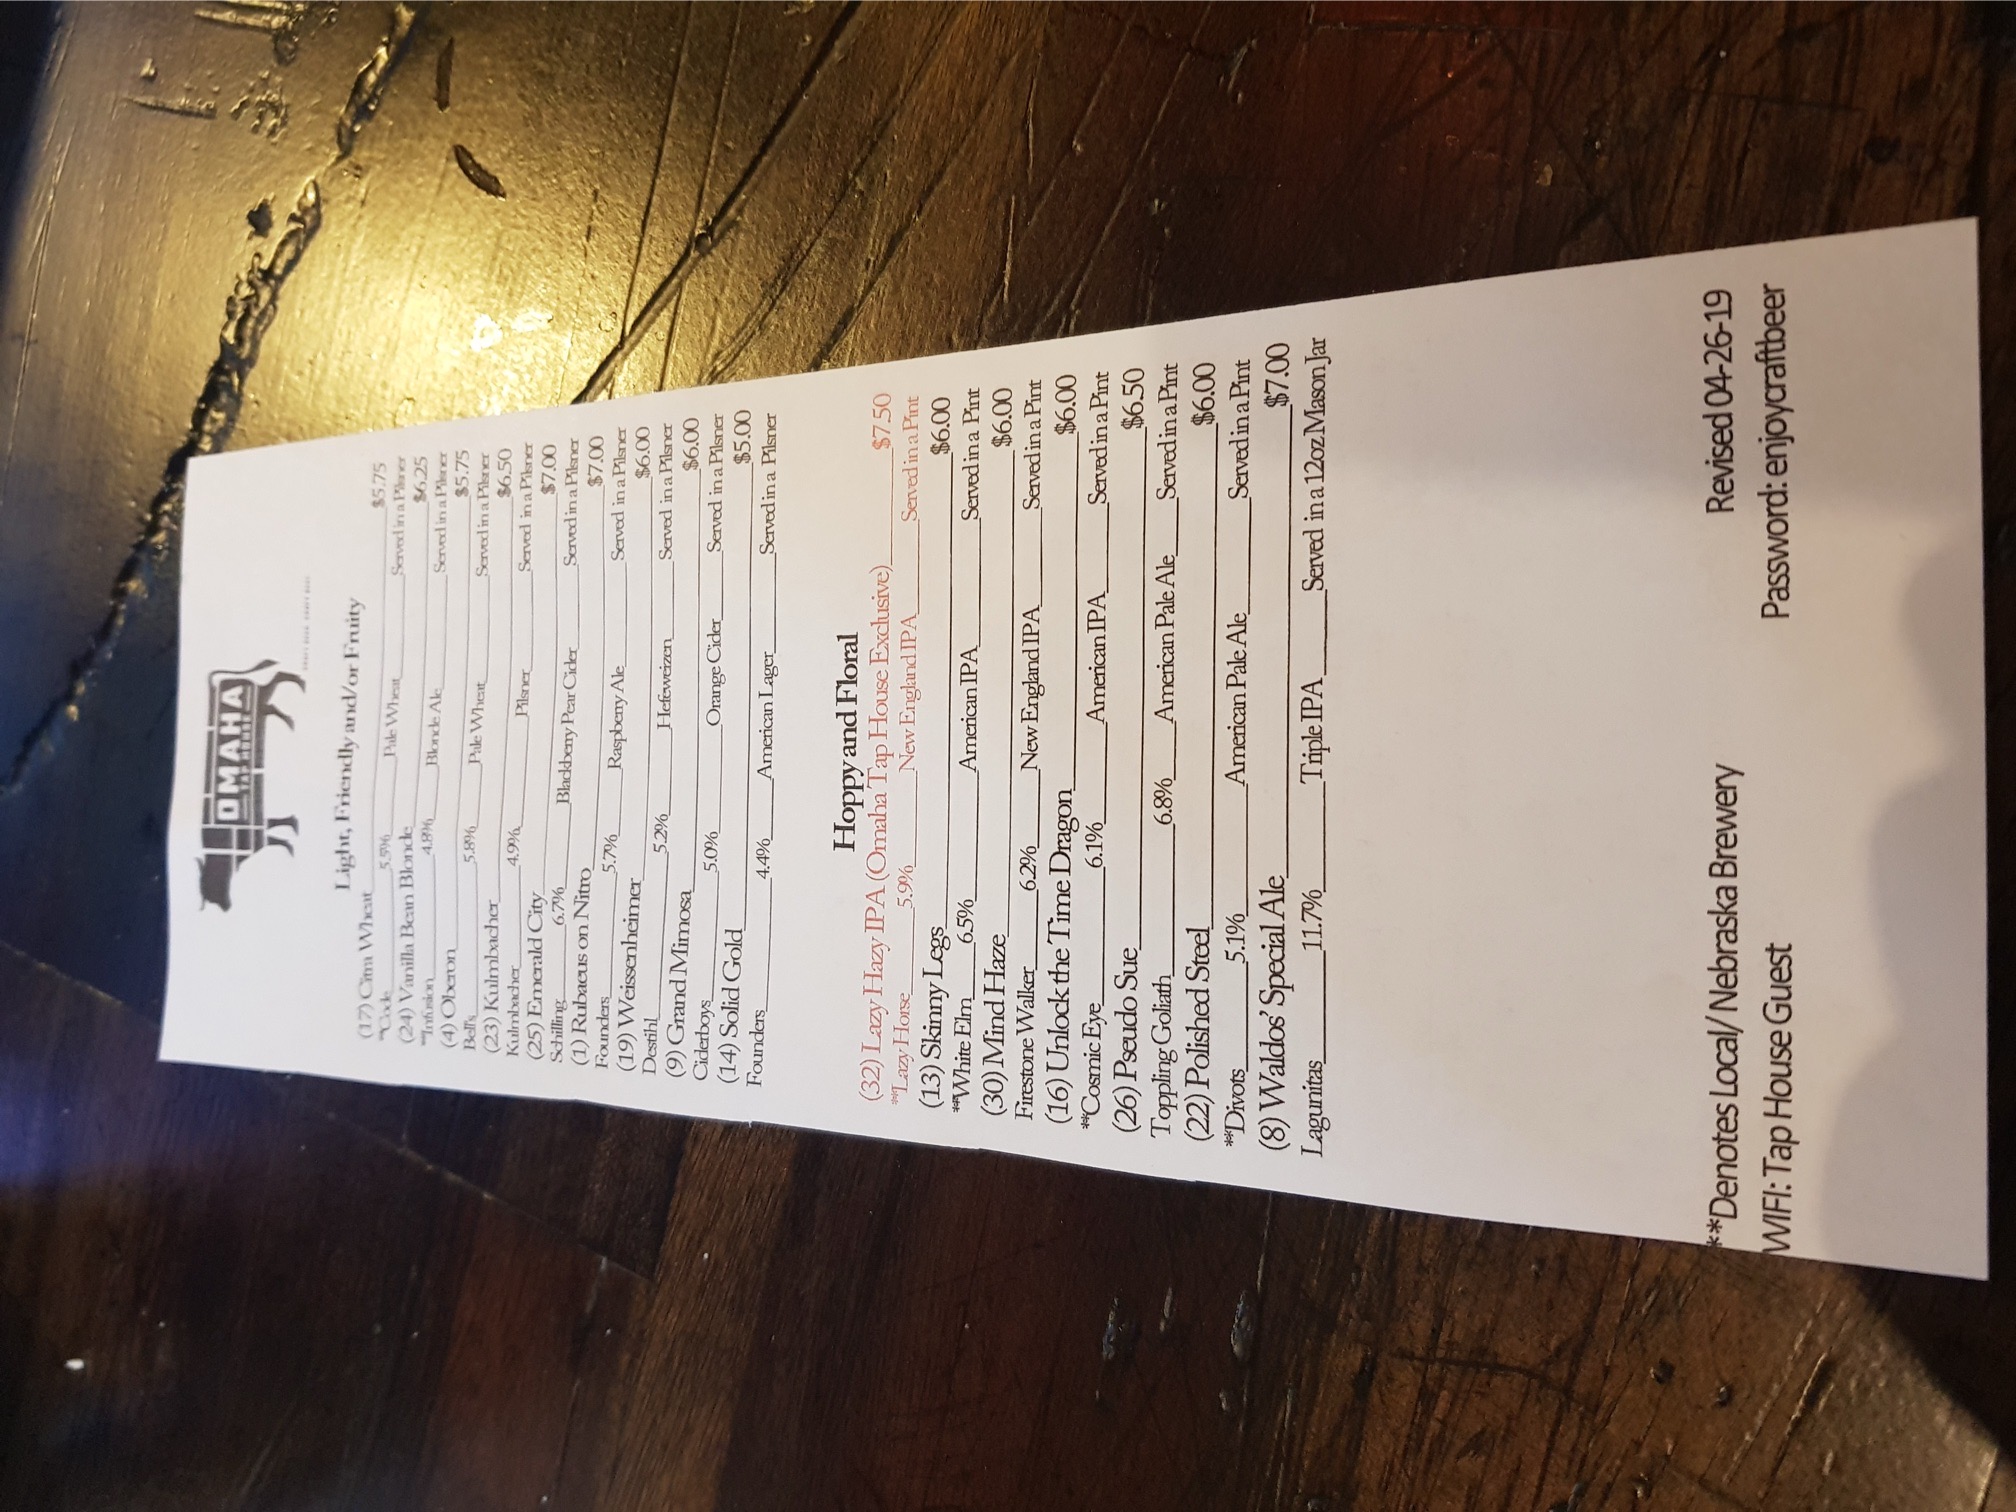 OMAHA
Light, Friendly and/or Fruity
(17) Citra Wheat $5.75
**Code 5.5% Pale Wheat Served in a Pilsner
(24) Vanilla Bean Blonde $6.25
**Infusion 4.8% Blonde Ale Served in a Pilsner
(4) Oberon $5.75
Bell's 5.8% Pale Wheat Served in a Pilsner
(23) Kulmbacher $6.50
Kulmbacher 4.9% Pilsner Served in a Pilsner
(25) Emerald City $7.00
Schilling 6.7% Blackberry Pear Cider Served in a Pilsner
(1) Rubaeus on Nitro $7.00
Founders 5.7% Raspberry Ale Served in a Pilsner
(19) Weissenheimer $6.00
Destihl 5.2% Hefeweizen Served in a Pilsner
(9) Grand Mimosa $6.00
Ciderboys 5.0% Orange Cider Served in a Pilsner
(14) Solid Gold $5.00
Founders 4.4% American Lager Served in a Pilsner
Hoppy and Floral
(32) Lazy Hazy IPA (Omaha Tap House Exclusive) $7.50
**Lazy Horse 5.9% New England IPA Served in a Pint
(13) Skinny Legs $6.00
**White Elm 6.5% American IPA Served in a Pint
(30) Mind Haze $6.00
Firestone Walker 6.2% New England IPA Served in a Pint
(16) Unlock the Time Dragon $6.00
**Cosmic Eye 6.1% American IPA Served in a Pint
(26) Pseudo Sue $6.50
Toppling Goliath 6.8% American Pale Ale Served in a Pint
(22) Polished Steel $6.00
**Divots 5.1% American Pale Ale Served in a Pint
(8) Waldos' Special Ale $7.00
Lagunitas 11.7% Triple IPA Served in a 12oz. Mason Jar
**Denotes Local/ Nebraska Brewery Revised 04-26-19
WIFI: Tap House Guest Password: enjoycraftbeer